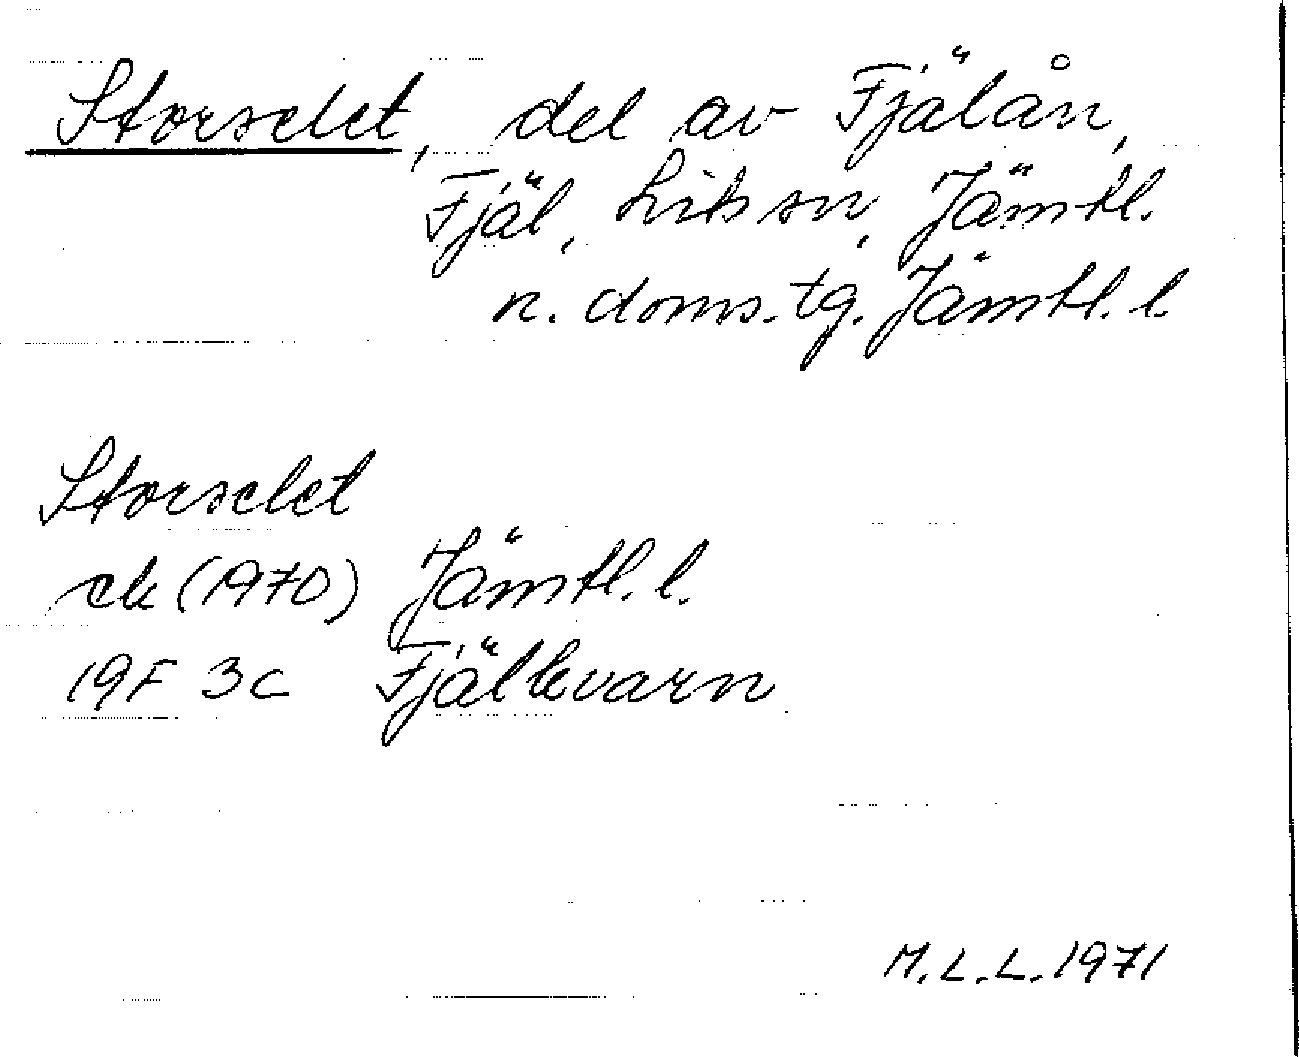 Storselet, del av Fjälån,
Fjäl, Lits sn, Jämtl.
n. doms.tg. Jämtl. l.
Storselet
ek (1970) Jämtl. l.
19F 3c Fjälkvarn
M.L.L. 1971